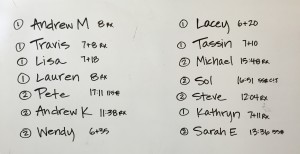 ① Andrew M 8 RX
① Travis 7+8 RX
① Lisa 7+18
① Lauren 8 RX
② Pete 17:11
② Andrew K 11:38 RX
② Wendy 6+35
① Lacey 6+20
① Tassin 7+10
② Michael 15:48 RX
② Sol 16:51
② Steve 12:04 RX
① Kathryn 7+11 RX
② Sarah E 13:36